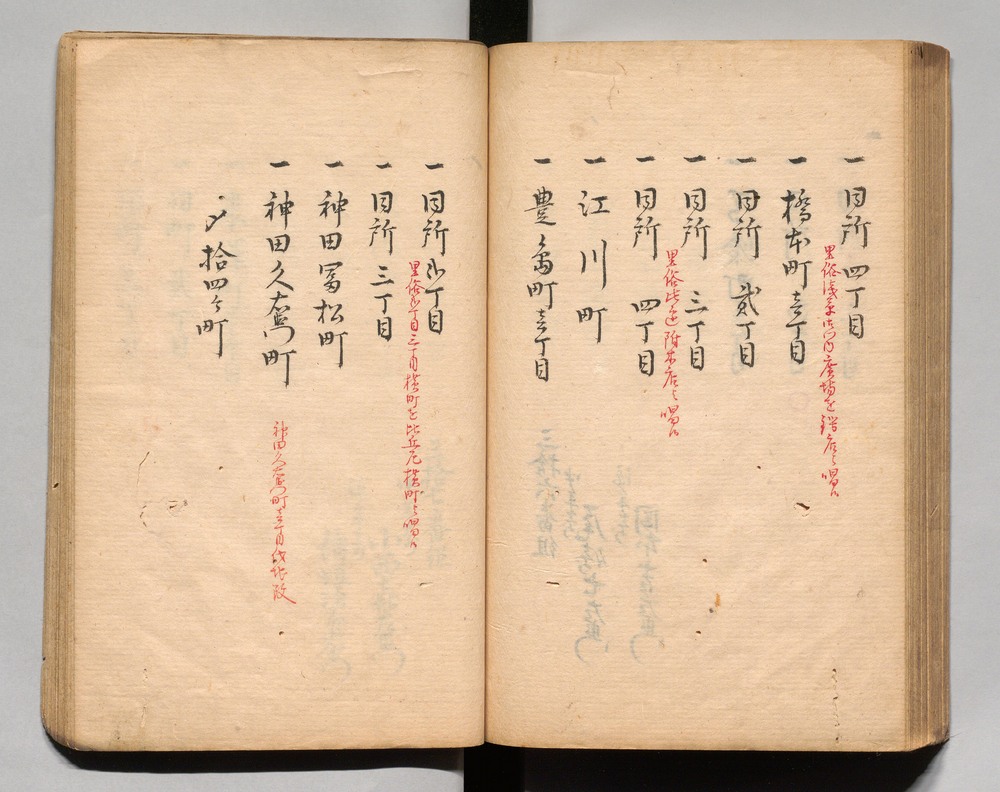 一 同所 四丁目
里俗浅草御門内 広場を 銭店と唱候
一 橋本町 壱丁目
一 同所 貳丁目
一 同所 三丁目
里俗此辺 附木店と唱候
一 同所 四丁目
一 江川町
一 豊嶋町 壱丁目
一 同所 弐丁目
里俗弐丁目三丁目横町を比丘尼横町と唱候
一 同所 三丁目
一 神田冨松町
一 神田久右衛門町
神田久右衛門町壱丁目代地改
〆 拾四ヶ町